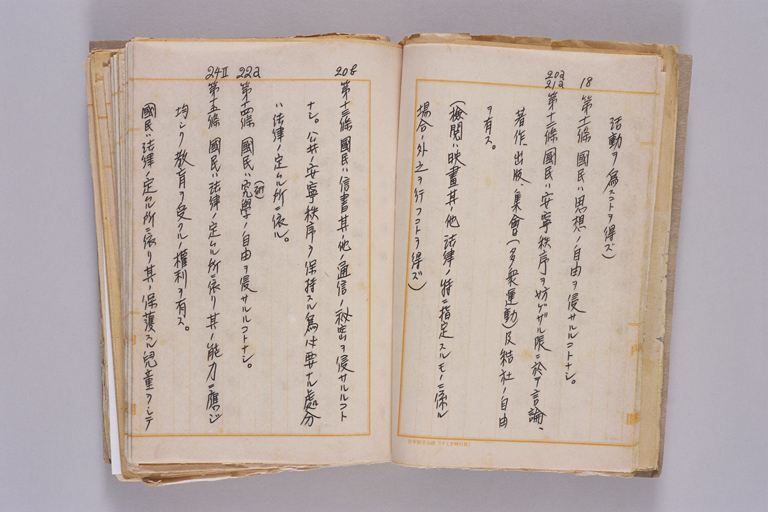 活動ヲ為スコトヲ得ズ)
18 第十一條 國民ハ思想ノ自由ヲ侵サルルコトナシ。
20a 21a 第十二條 國民ハ安寧秩序ヲ妨ゲザル限ニ於テ言論、
著作、出版、集會(多衆運動)及結社ノ自由
ヲ有ス。
(檢閲ハ映畫其ノ他法律ノ特ニ指定スルモノニ係ル
場合ノ外之ヲ行フコトヲ得ズ)
20b 第十三條 國民ハ信書其ノ他ノ通信ノ秘密ヲ侵サルルコト
ナシ。公共ノ安寧秩序ヲ保持スル為必要ナル處分
ハ法律ノ定ムル所ニ依ル。
22a 第十四條 國民ハ究學(研)ノ自由ヲ侵サルルコトナシ。
24Ⅱ 第十五條 國民ハ法律ノ定ムル所ニ依リ其ノ能力ニ應ジ
均シク教育ヲ受クルノ權利ヲ有ス。
國民ハ法律ノ定ムル所ニ依リ其ノ保護スル兒童ヲシテ